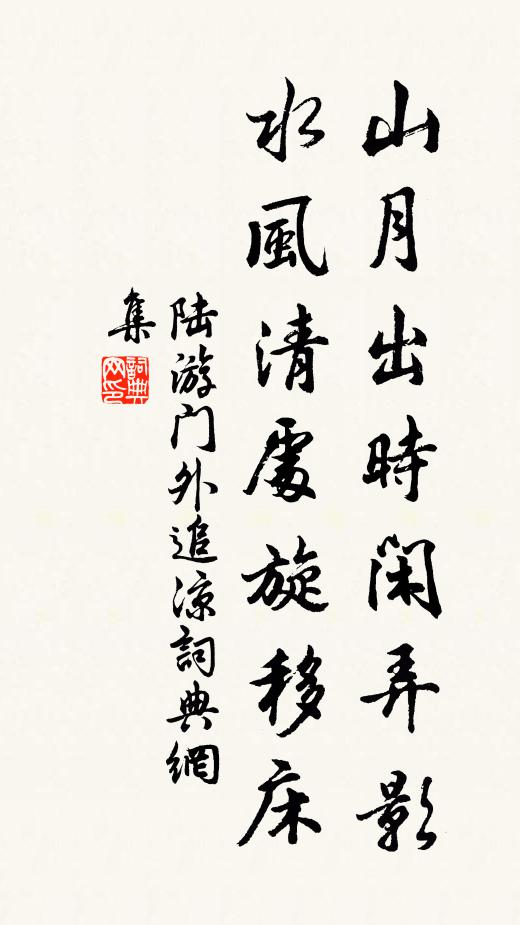 山月出時閑弄影
水風清處旋移床
陸游門外追涼詞典網
集
詞典
网印